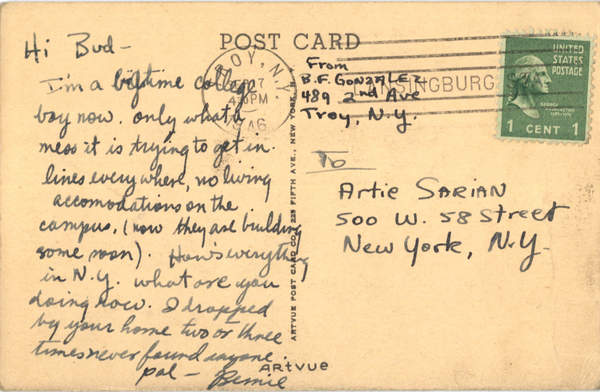 Hi Bud-
I'm a bigtime college
boy now. only what a
mess it is trying to get in.
lines everywhere, no living
accomodations on the
campus, (now they are building
some soon). How's everything
in N.Y. what are you
doing now. I dropped
by your home two or three
times never found anyone.
pal- Bernie
POST CARD
TROY, N.Y.
7
PM
1946
LANSINGBURG
From
B.F. GONZALEZ
489 2nd Ave
Troy, N.Y.
UNITED
STATES
POSTAGE
GEORGE
WASHINGTON
1 CENT 1
To
Artie SARIAN
500 W. 58 Street
New York, N.Y.
ARTVUE POST CARD CO., 225 FIFTH AVE., NEW YORK, N.Y.
ARTVUE